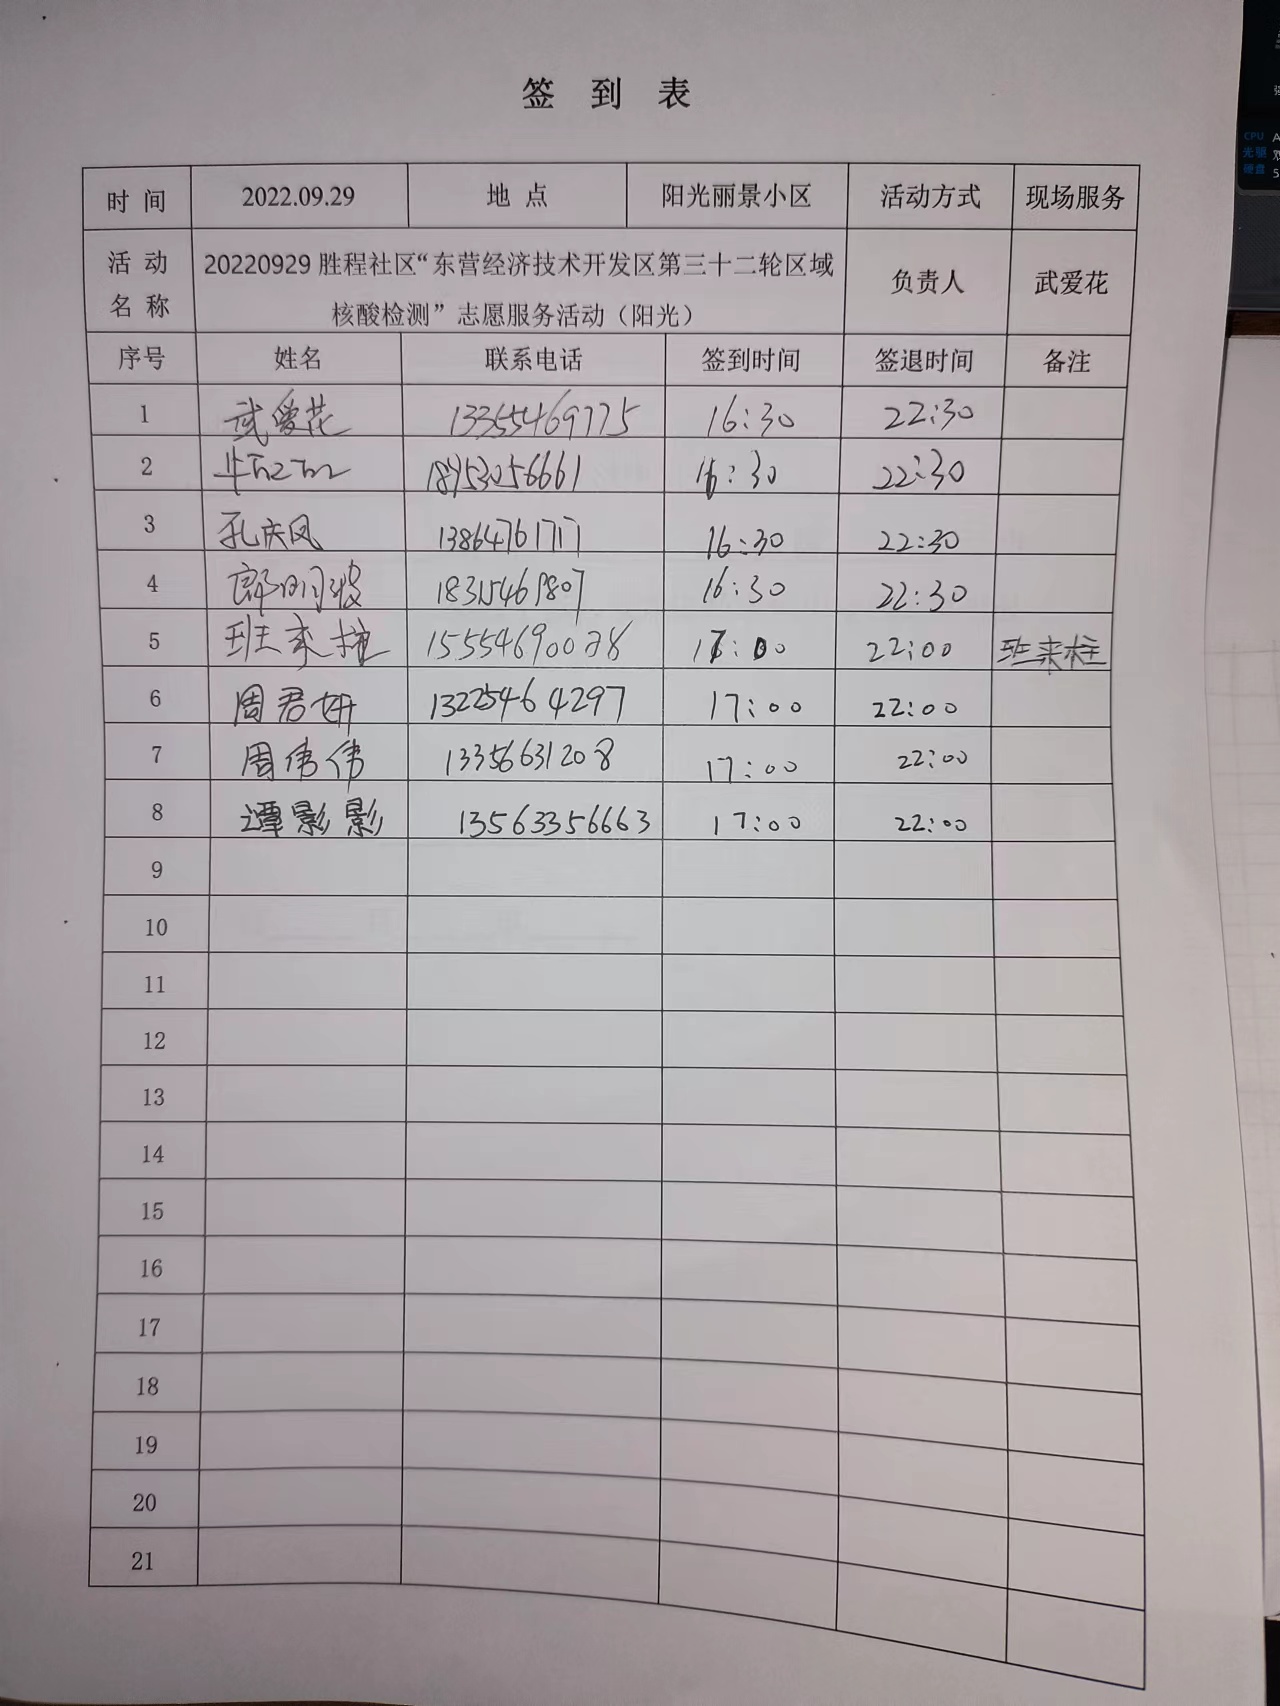 签 到 表
时 间 2022.09.29 地 点 阳光丽景小区 活动方式 现场服务
活 动 名 称 20220929 胜程社区“东营经济技术开发区第三十二轮区域
核酸检测”志愿服务活动（阳光） 负责人 武爱花
序号 姓名 联系电话 签到时间 签退时间 备注
1 武爱花 13355469775 16:30 22:30
2 18953056661 16:30 22:30
3 孔庆风 13864761717 16:30 22:30
4 郎明波 16:30 22:30
5 班来柱 15554690028 22:00 班来柱
6 周君妍 13225464297 17:00 22:00
7 周伟伟 13356631208 17:00 22:00
8 谭影影 13563356663 17:00 22:00
9
10
11
12
13
14
15
16
17
18
19
20
21
CPU
光驱
硬盘